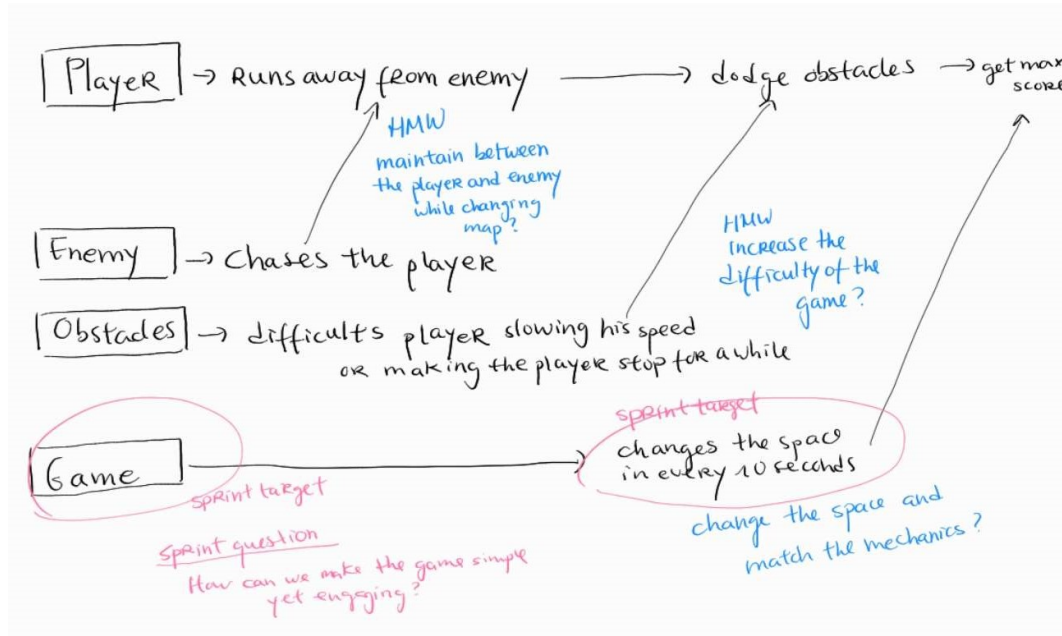 Player → Runs away from enemy → dodge obstacles → get max
score
HMW
maintain between
the player and enemy
while changing
map?
Enemy → Chases the player
HMW
increase the
difficulty of the
game?
Obstacles → difficults player slowing his speed
or making the player stop for a while
sprint target
Game → changes the space
in every 10 seconds
sprint target
change the space and
match the mechanics?
sprint question
How can we make the game simple
yet engaging?